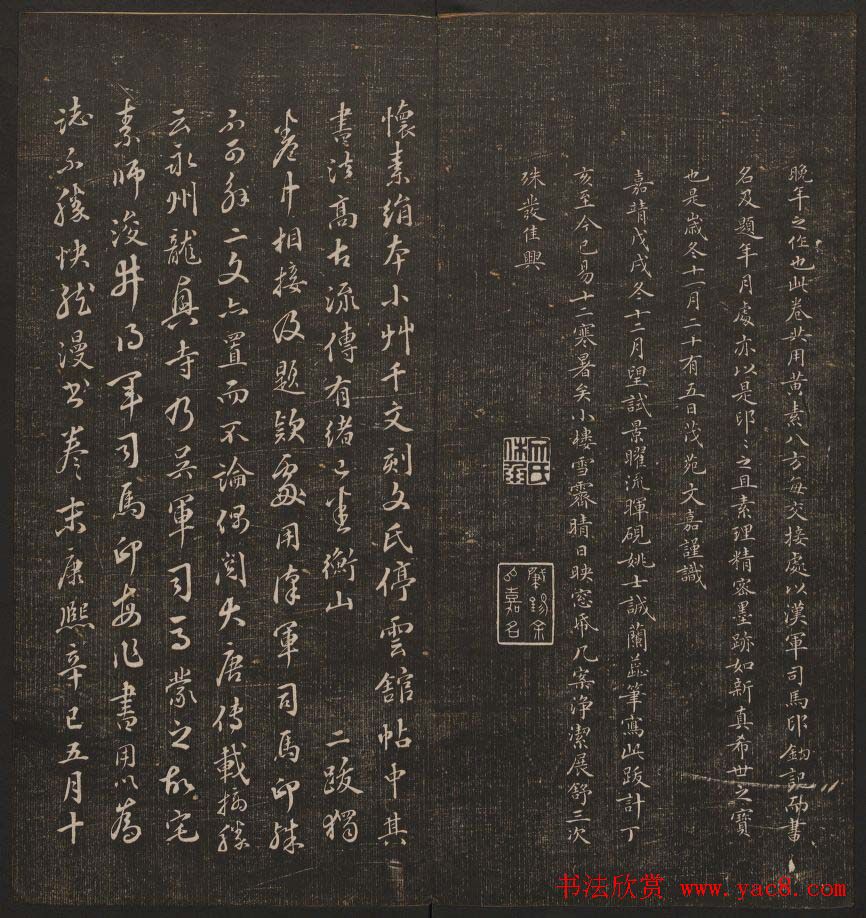 晚年之作也此卷共用黄素八方每交接處以漢軍司馬印鈐記而書
名及題年月處亦以是印〻之且素理精密墨跡如新真希世之寶
也是歲冬十一月二十有五日茂苑文嘉謹識
嘉靖戊戌冬十二月望試景曜流暉硯姚士誠蘭蕊筆寫此跋計丁
亥至今已易十二寒暑矣小樓雪霽晴日映窓牖几案浄潔展舒三次
殊發佳興
文氏休承
肇錫余以嘉名
懷素絹本小艸千文刻文氏停雲舘帖中其
書法高古流傳有緒衡山二跋獨
卷中相接及題欵處用漢軍司馬印殊
不可解二文亦置而不論偶閲大唐傳載
云永州龍興寺乃吴軍司馬蒙之故宅
素師浚井得軍司馬印每作書用以為
誌不勝快然漫書卷末康熙辛巳五月十
书法欣赏 www.yac8.com